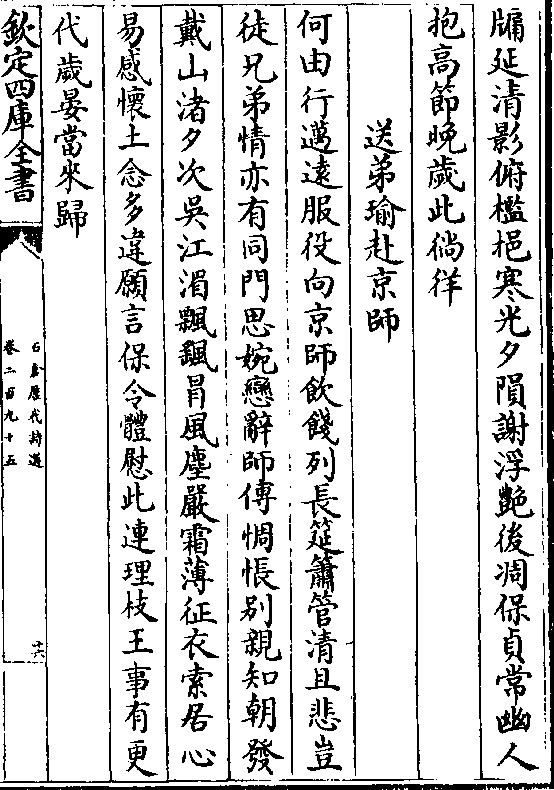 牖延清影俯檻挹寒光夕隕謝浮艶後凋保貞常幽人
抱高節晚歲此徜徉
送弟瑜赴京師
何由行邁遠服役向京師飲餞列長筵簫管清且悲豈
徒兄弟情亦有同門思婉戀辭師傅惆悵别親知朝發
戴山渚夕次吳江湄飄颻冐風塵嚴霜薄征衣索居心
易感懷土念多違願言保令體慰此連理枝王事有更
代歲晏當來歸
欽定四庫全書
石倉歷代詩選
卷二百九十五
十六